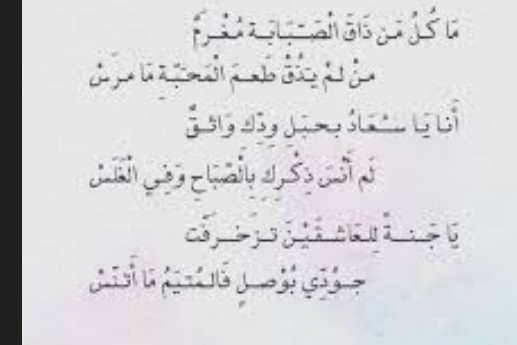 مَا كُلُّ مَن ذَاقَ الْصَّبَابَة مُغْرَمٌ
منْ لمْ يَذُقْ طَعمَ الْمَحَبّةِ مَا مرَسْ
أَنا يَا سُعَادُ بحبَلِ ودِّك وَاثقٌ
لَم أَنْسَ ذِكْرِكِ بِالْصّبَاحِ وَفِي الْغَلَسْ
يَا جَنةً لِلعَاشقَيْنَ تزَخرفَت
جوُدِّي بُوْصلٍ فَالمُتيَمُ مَا أَتنَسْ